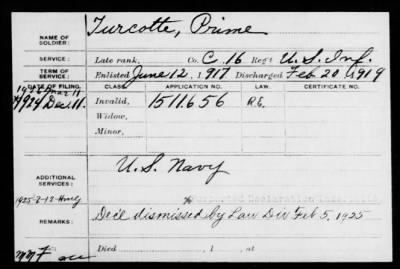 NAME OF SOLDIER: Turcotte, Prime
SERVICE: Late rank, Co. C. 16 Reg't U.S. Inf.
TERM OF SERVICE: Enlisted June 12, 1917 Discharged Feb 20, 1919
DATE OF FILING. CLASS. APPLICATION NO. LAW. CERTIFICATE NO.
1924 Dec. 11. Invalid, 1511656 R.E.
Widow,
Minor,
ADDITIONAL SERVICES: U.S. Navy
1925-2-12
REMARKS: Dec'l dismissed by Law Div Feb 5, 1925
Died , 1 , at